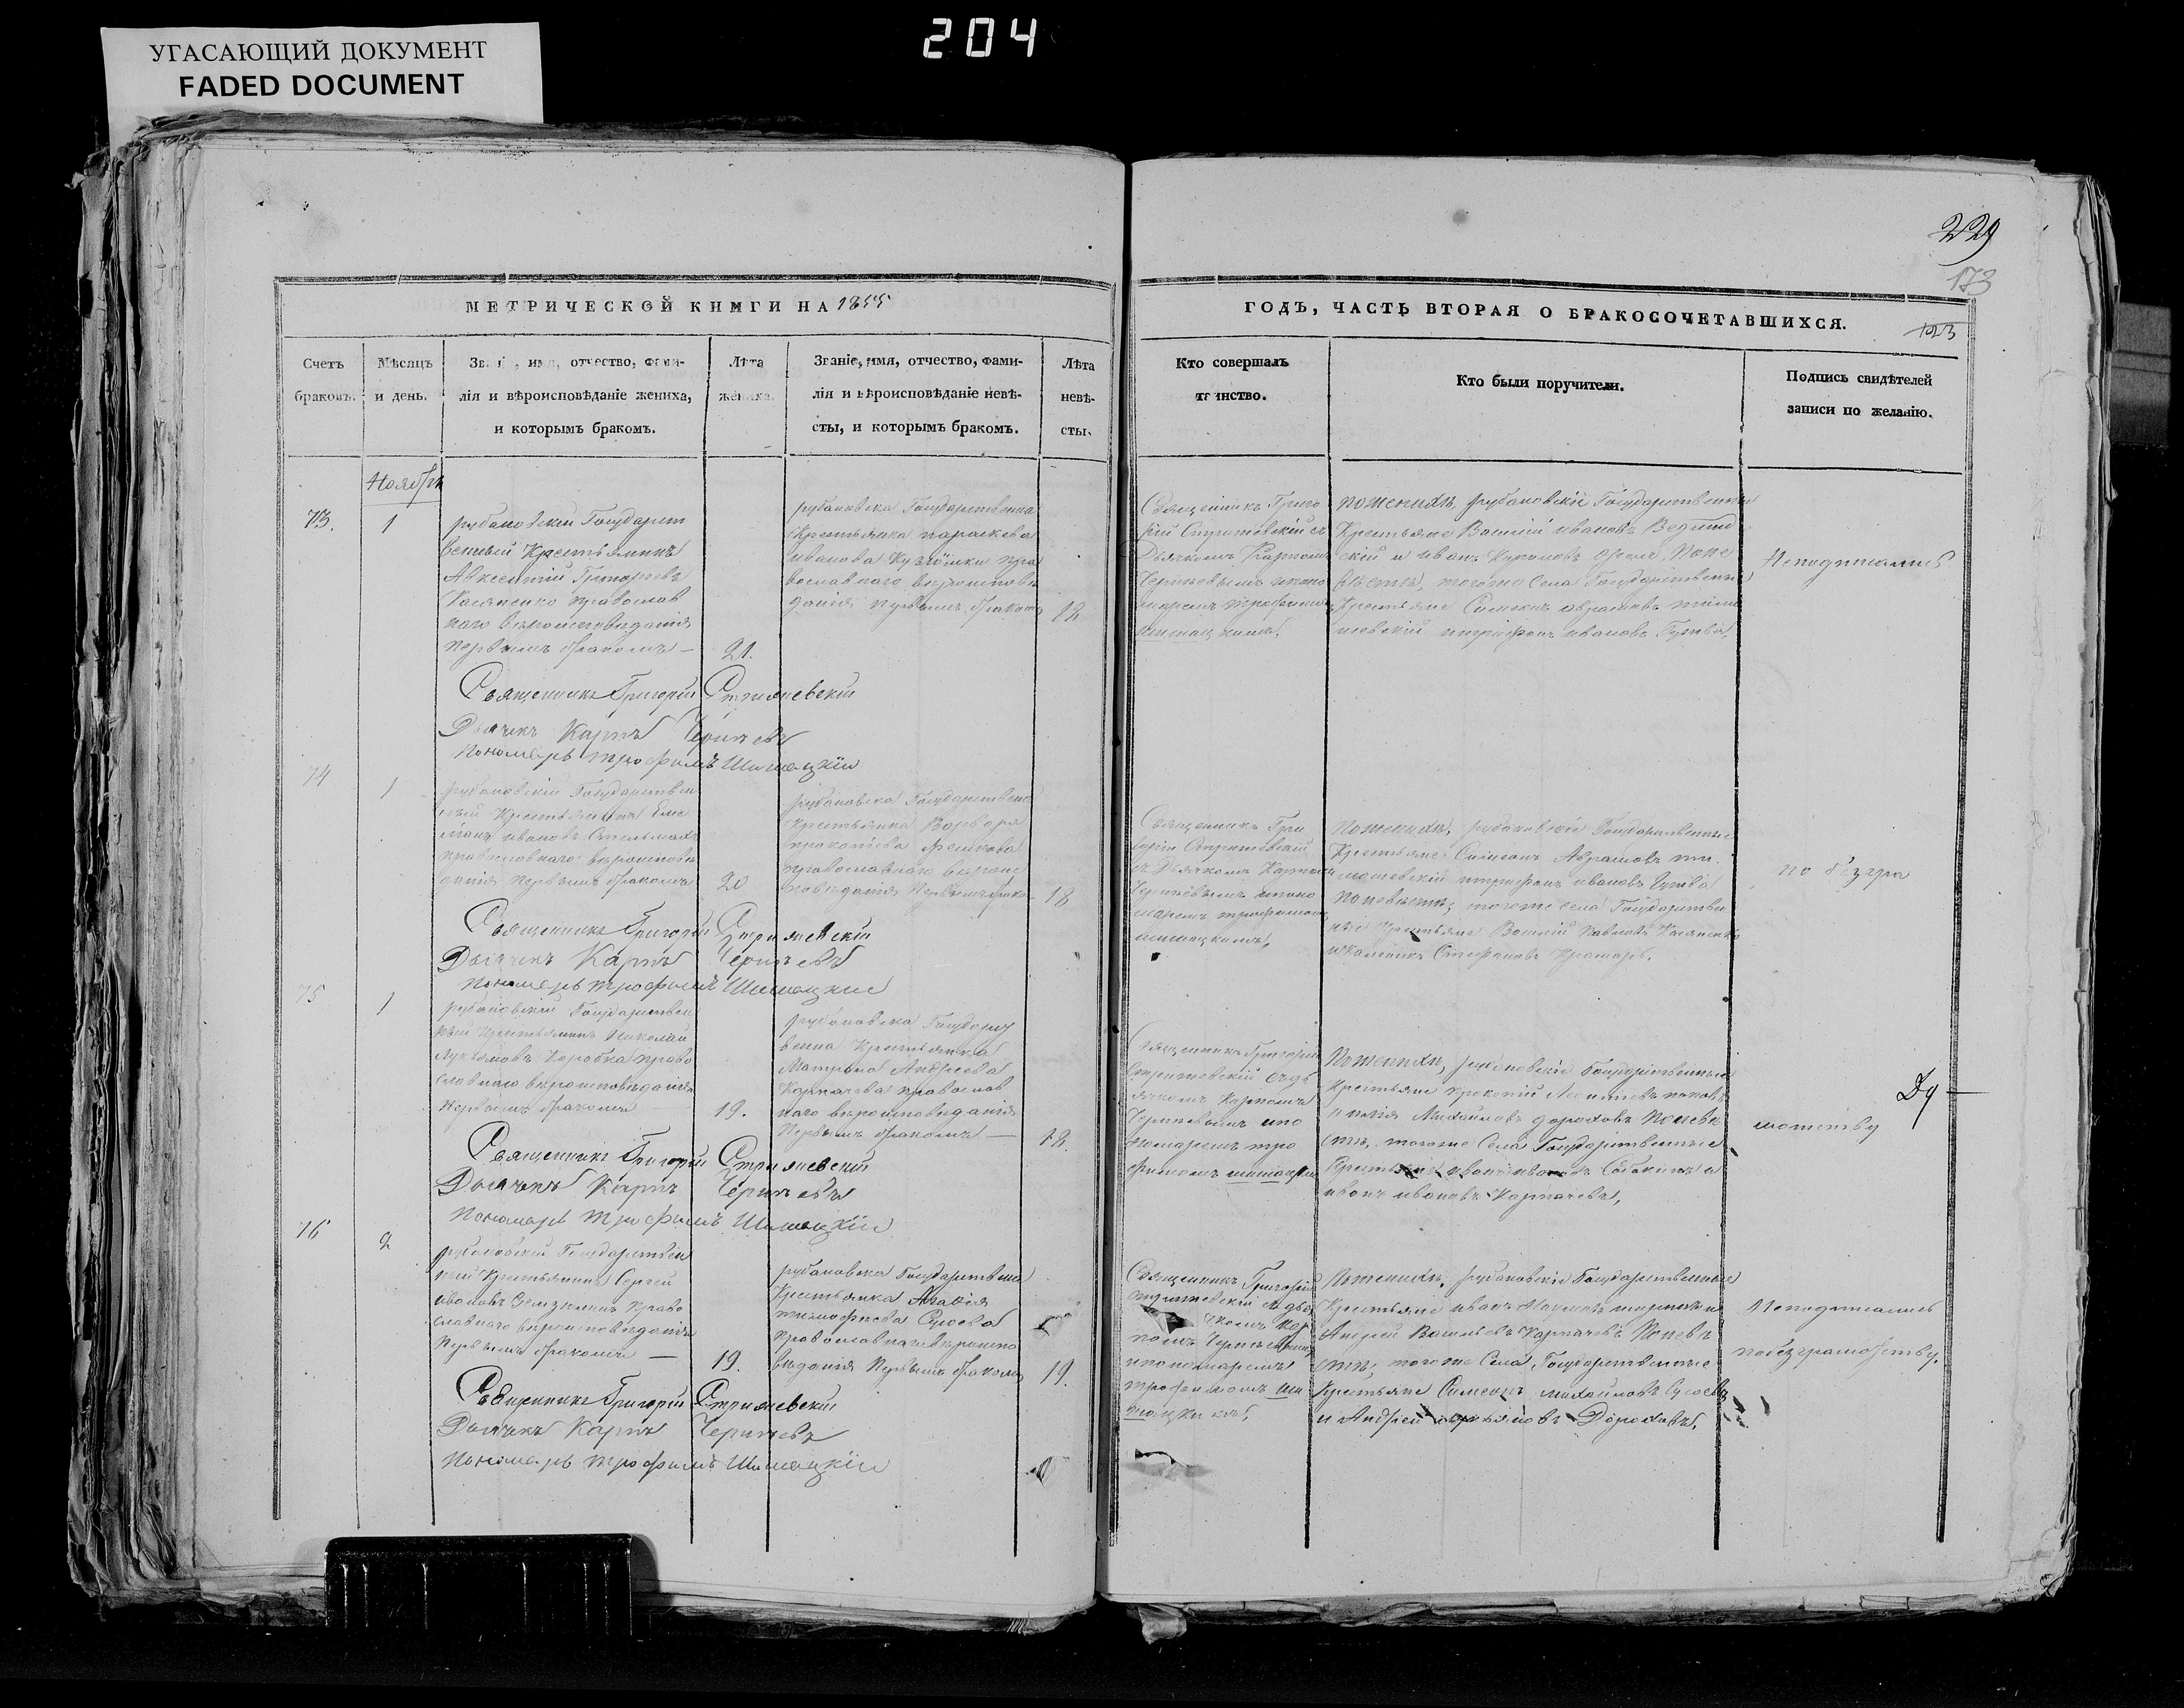 УГАСАЮЩИЙ ДОКУМЕНТ
FADED DOCUMENT
204
229
173
123
МЕТРИЧЕСКОЙ КНИГИ НА 1855
ГОДЪ, ЧАСТЬ ВТОРАЯ О БРАКОСОЧЕТАВШИХСЯ.
Счетъ
браковъ.
Мѣсяцъ
и день.
Званіе, имя, отчество, фами-
лія и вѣроисповѣданіе жениха,
и которымъ бракомъ.
Лѣта
жениха.
Званіе, имя, отчество, фами-
лія и вѣроисповѣданіе невѣ-
сты, и которымъ бракомъ.
Лѣта
невѣ-
сты.
Кто совершалъ
таинство.
Кто были поручители.
Подпись свидѣтелей
записи по желанію.
Ноябрь
73.
1
рубановскій Государст
венный Крестьянинъ
Авксентій Григорьевъ
Касяненко православ
наго вѣроисповѣданія
первымъ бракомъ —
21.
рубановска Государственна
Крестьянка параскева
иванова пра
вославнаго вѣроисповѣ
данія первымъ бракомъ
18
Священникъ Григо
рій съ
Дьячкомъ Карпомъ
Черничевымъ ипоно
маремъ трофимомъ
шишацкимъ,
поженихѣ, рубановскіе Государственныи
Крестьяне Василій ивановъ
скій и иванъ поне
вѣстѣ, тогоже Села Государственныи
Крестьяне Симеонъ аврамовъ тима
шевскій итрифонъ ивановъ
Неподписались
Священникъ Григорій
Дьячекъ Карпъ
Пономарь трофимъ Шишацкій
74
1
рубановскій Государствен
ный Крестьянинъ Еме
ліянъ ивановъ Стельмахъ
православнаго вѣроисповѣ
данія первымъ бракомъ
20
рубановска Государствена
Крестьянка Варвара
прокофіева
православнаго вѣроис
повѣданія первымъ брако
18
Священникъ Гри
горій
съ Дьячкомъ Карпомъ
ипоно
маремъ трофимомъ
шишацкимъ,
поженихѣ, рубановскіе Государственные
Крестьяне Симеонъ Аврамовъ ти
машевскій итрифонъ ивановъ
поневѣстѣ, тогоже села Государствен
ные Крестьяне Василій Павловъ Касяненко
Стефановъ Крамарь.
по безгра
Священникъ Григорій
Дьячекъ Карпъ
Пономарь трофимъ Шишацкій
75
1
рубановскій Государствен
ный Крестьянинъ Николай
Лукьяновъ Коробка право
славнаго вѣроисповѣданія
первымъ бракомъ —
19.
рубановска Государст
венна Крестьянка
Матрона Андреева
Карпачева православ
наго вѣроисповѣданія
первымъ бракомъ —
18
Священникъ Григорій
съдь
ячкомъ Карпомъ
ипо
номаремъ тро
фимомъ шишацким
Поженихѣ, рубановскіе Государственные
Крестьяне прокопій поповъ
Михайловъ дороховъ Поневѣ
стѣ, тогоже Села Государственные
Крестьяне иванъ ивановъ Собакинъ и
иванъ ивановъ Карпачевъ,
мотству
Священникъ Григорій
Дьячекъ Карпъ
Пономарь трофимъ Шишацкій
76
2
рубановскій Государствен
ный Крестьянинъ Сергей
ивановъ право
славнаго вѣроисповѣданія
первымъ бракомъ —
19.
рубановска Государствена
Крестьянка Агафія
тимофеева Сусова
православнаго вѣроиспо
вѣданія первымъ бракомъ
19.
Священникъ Григорій
съ дья
чкомъ Кар
помъ
ипономаремъ
трофимомъ ши
шацкимъ,
Поженихѣ, рубановскіе Государственные
Крестьяне иванъ
Андрей Васильевъ Карпачевъ Поневѣ
стѣ, тогоже Села Государственные
Крестьяне Симеонъ михайловъ Сусовъ
и Андрей Дороховъ,
Неподписались
побезграмотству.
Священникъ Григорій
Дьячекъ Карпъ
Пономарь трофимъ Шишацкій